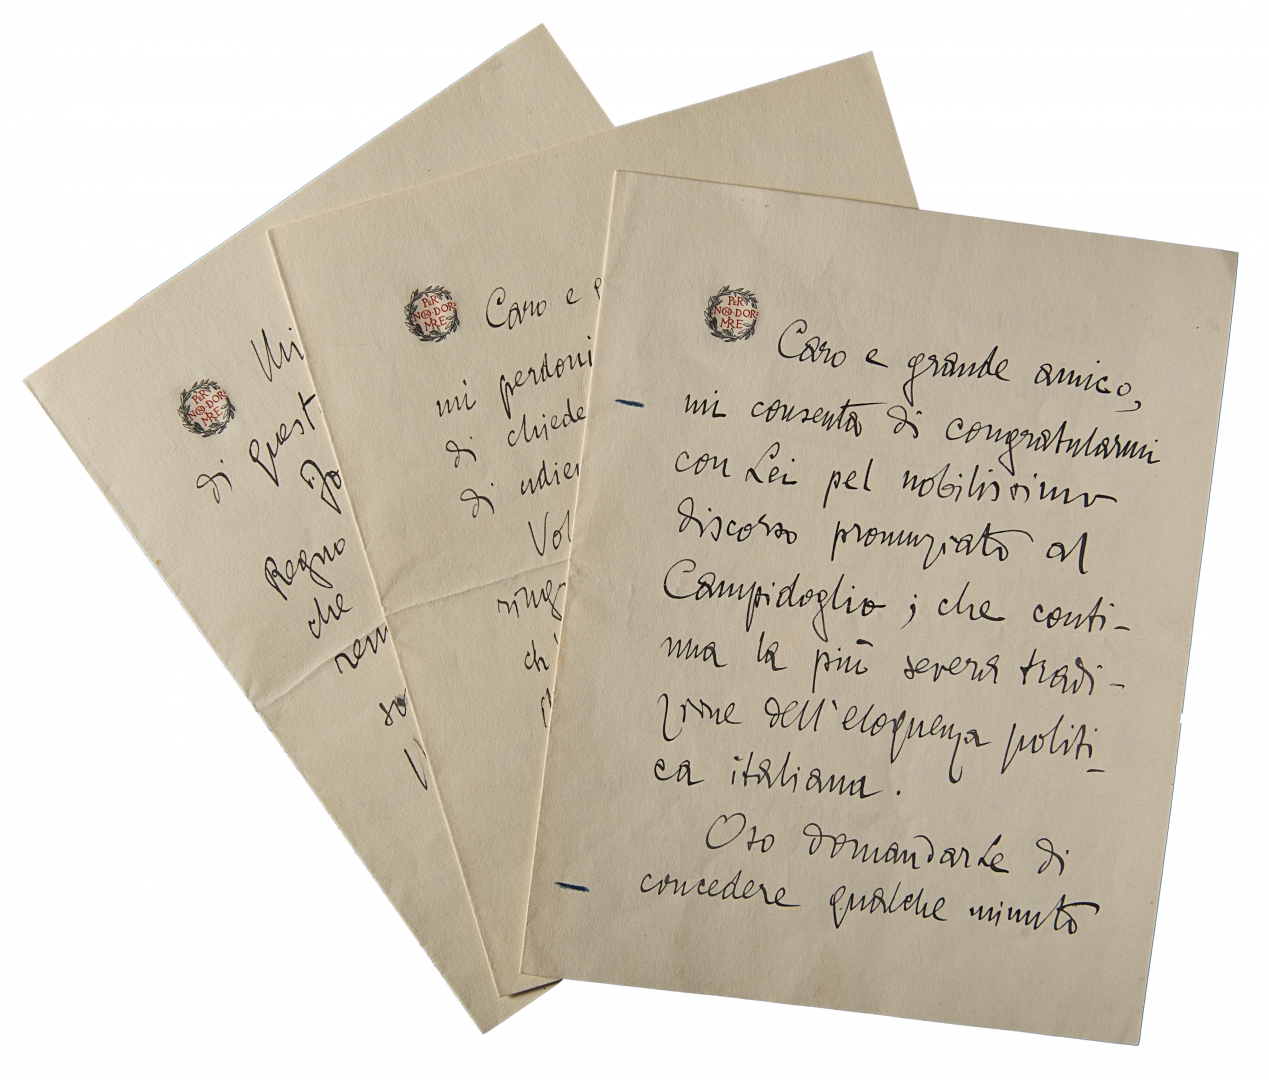 PER
NON DOR-
MIRE
Mi
di quest
Regno
che
rem
so
V
PER
NON DOR-
MIRE
Caro e g
mi perdoni
di chiede
di udien
Vol
ring
ch'
PER
NON DOR-
MIRE
Caro e grande amico,
mi consenta di congratularmi
con Lei pel nobilissimo
discorso pronunziato al
Campidoglio; che conti-
nua la più severa tradi-
zione dell'eloquenza politi-
ca italiana.
Oso domandarLe di
concedere qualche minuto